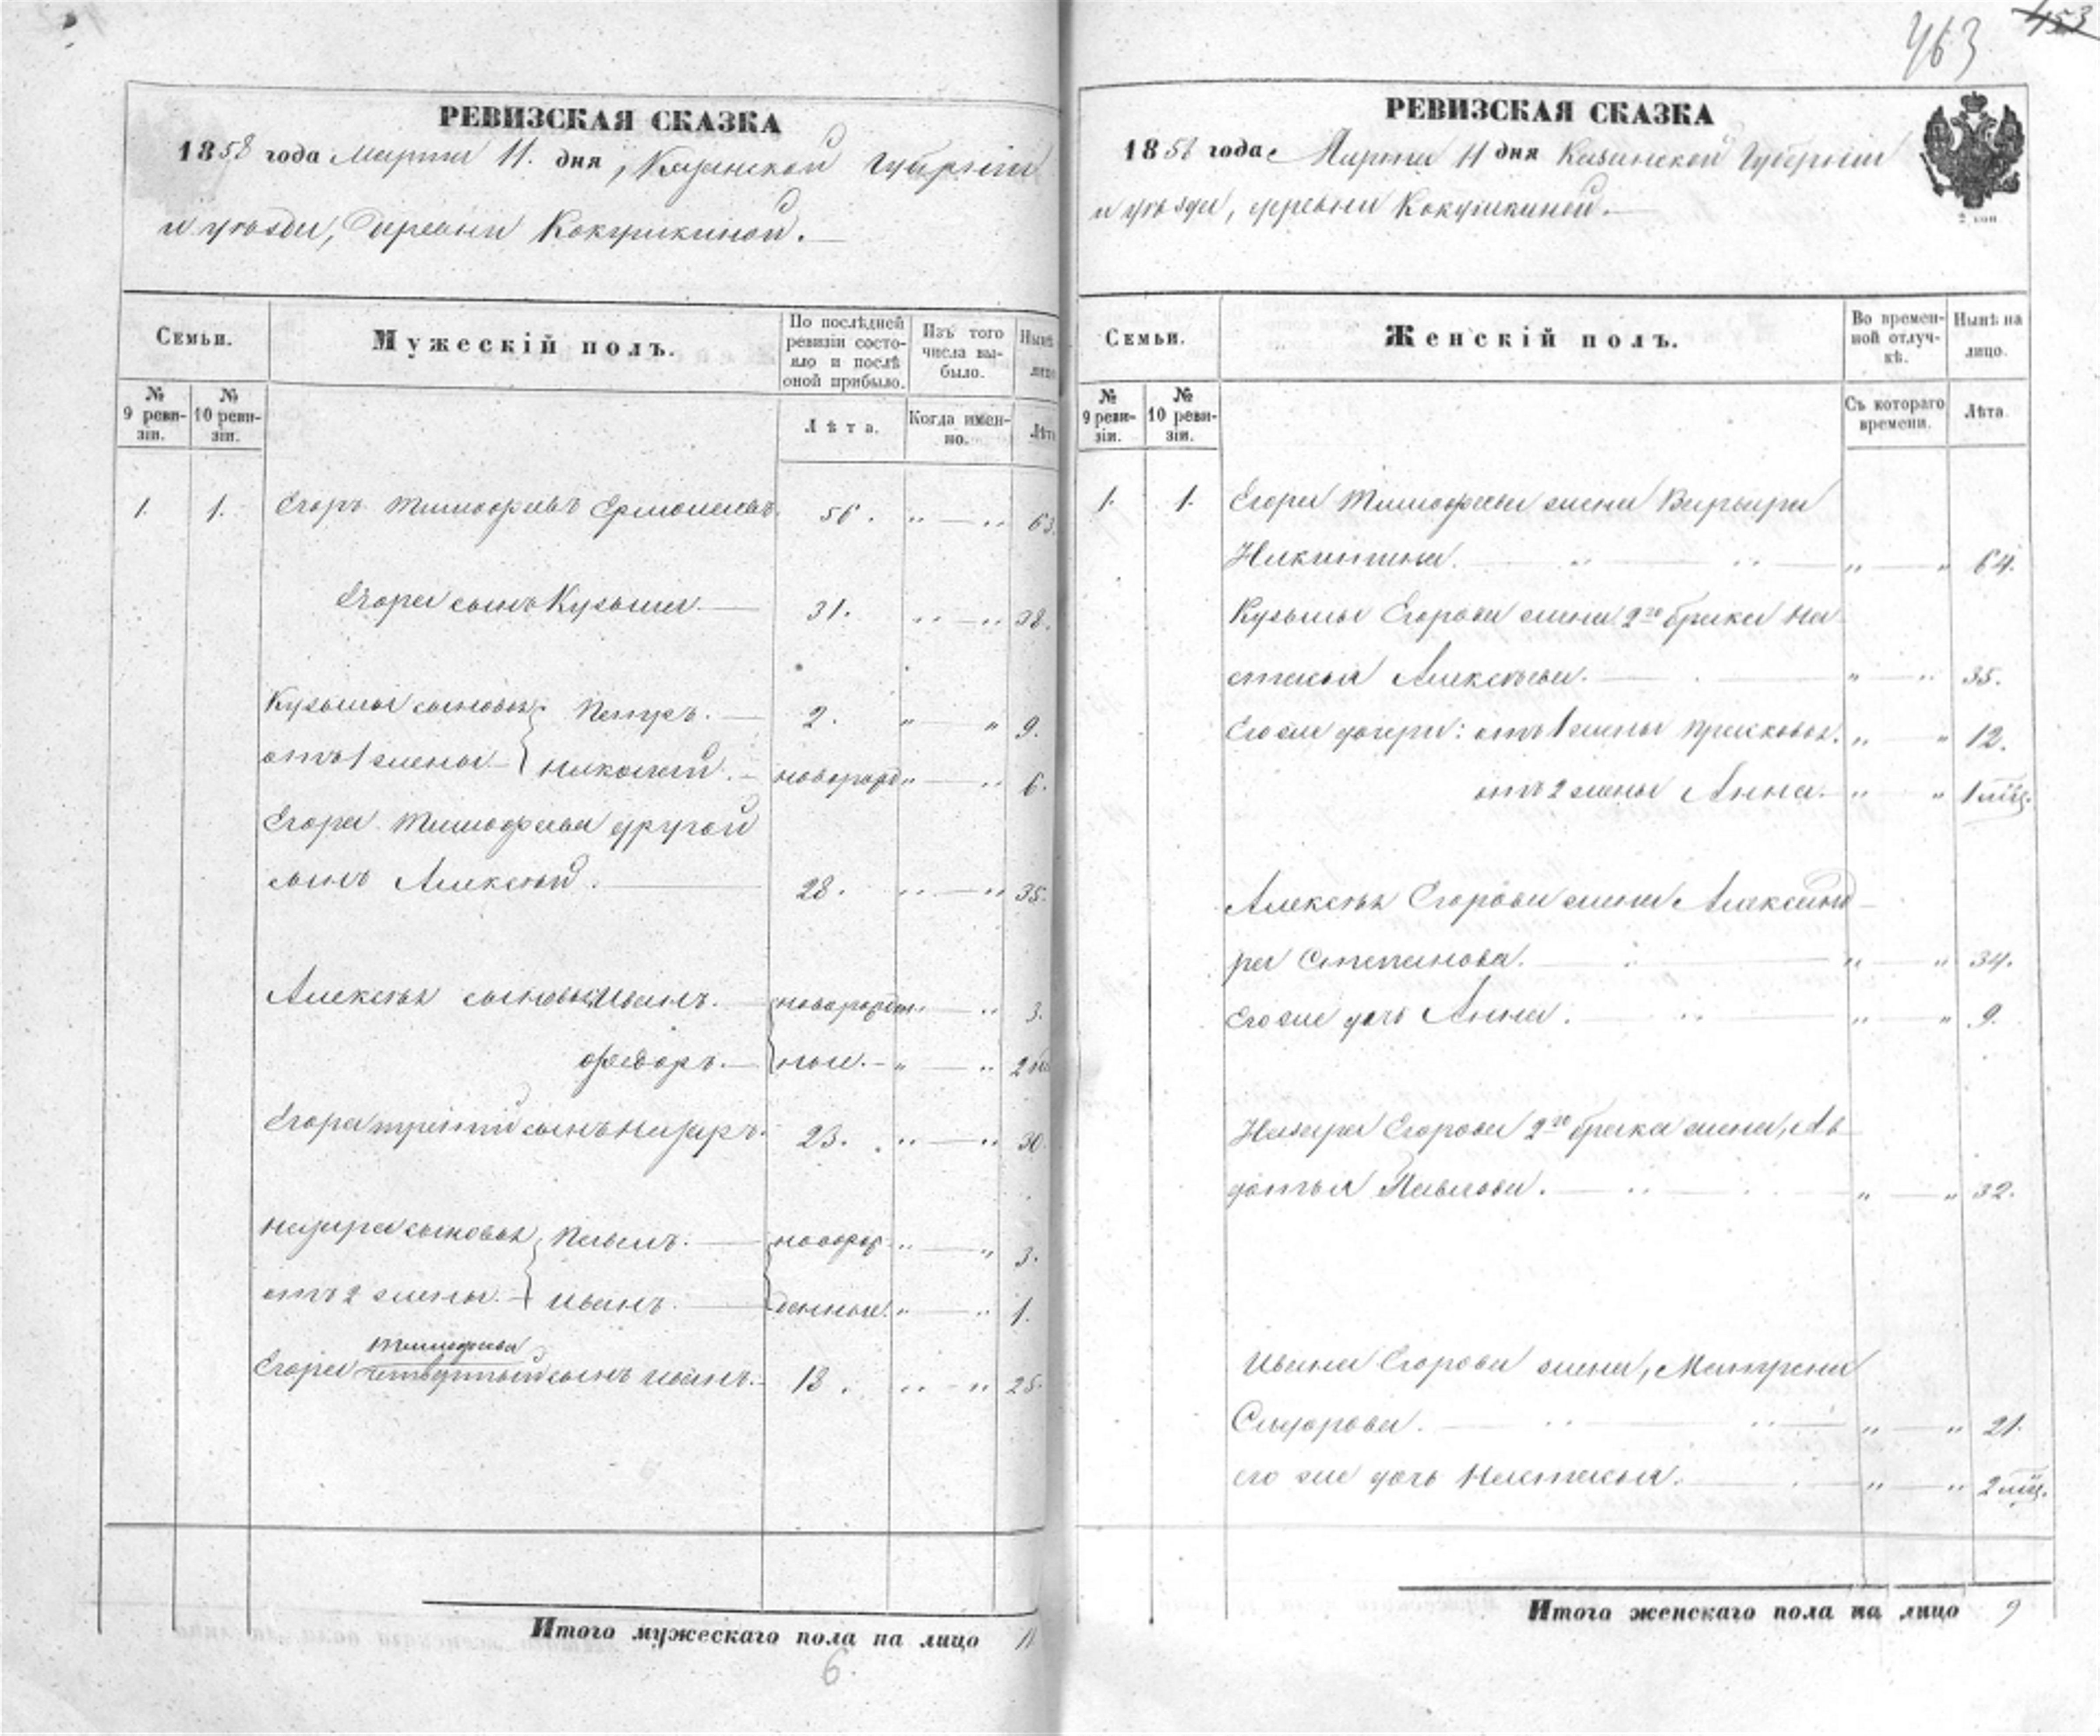 463 453
РЕВИЗСКАЯ СКАЗКА
1858 года Марта 11. дня, Казанской Губерніи
и уѣзда, Деревни Кокушкиной.
Семьи.
Мужескій полъ.
По послѣдней ревизіи состояло и послѣ оной прибыло.
Изъ того числа выбыло.
Нынѣ лицо
№ 9 ревизіи.
№ 10 ревизіи.
Лѣта.
Когда именно.
Лѣта
1. 1. Егоръ Тимофѣевъ Ермолаевъ. 56. „ — „ 63.
Егора сынъ Кузьма. — 31. „ — „ 38.
Кузьмы сыновья: Петръ. — 2. „ — „ 9.
отъ 1 жены — Николай. — новорожд „ — „ 6.
Егора Тимофѣева другой
сынъ Алексѣй. — 28. „ — „ 35.
Алексѣя сыновья Иванъ. — новорожден „ — „ 3.
Ѳедоръ. — ные. — „ — „ 2
Егора третій сынъ Назаръ. 23. „ — „ 30.
Назара сыновья Павелъ. — новорож „ — „ 3.
отъ 2 жены. — Иванъ. — денные. „ — „ 1.
Тимофѣева
Егора четвертый сынъ Иванъ. — 18. „ — „ 25.
Итого мужескаго пола на лицо 11
6.
РЕВИЗСКАЯ СКАЗКА
1858 года Марта 11 дня Казанской Губерніи
и уѣзда, деревни Кокушкиной. —
2 коп
Семьи.
Женскій полъ.
Во временной отлучкѣ.
Нынѣ на лицо.
№ 9 ревизіи.
№ 10 ревизіи.
Съ котораго времени.
Лѣта.
1. 1. Егора Тимофѣева жена Варвара
Никитина. — „ — „ 64.
Кузьмы Егорова жена 2го брака На
стасья Алексѣева. — „ — „ 35.
Его же дочери: отъ 1 жены Прасковья. „ — „ 12.
отъ 2 жены Анна. — „ — „ 1 мѣс.
Алексѣя Егорова жена Александ
ра Степанова. — „ — „ 34.
Его же дочь Анна. — „ — „ 9.
Назара Егорова 2го брака жена, Ав
дотья Павлова. — „ — „ 32.
Ивана Егорова жена, Матрена
Сидорова. — „ — „ 21.
его же дочь Настасья. — „ — „ 2 мѣс.
Итого женскаго пола на лицо 9